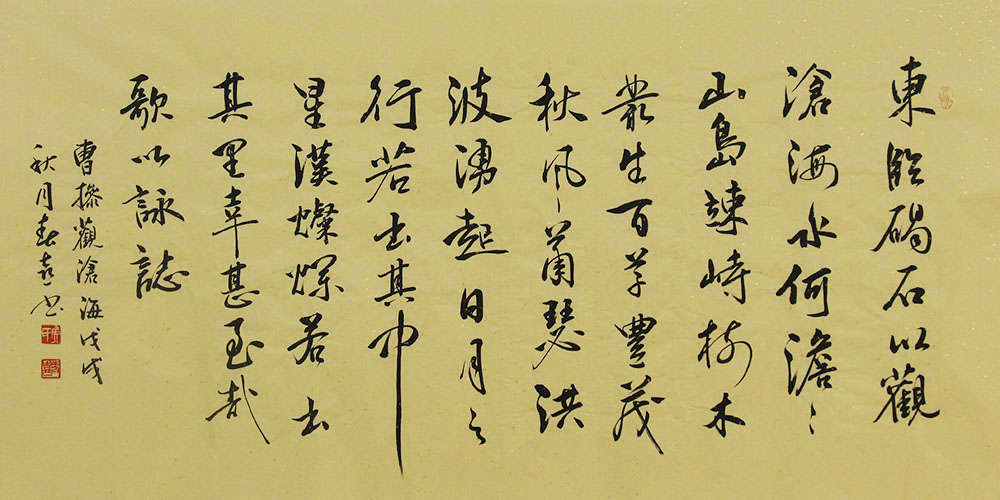 東臨碣石以觀
滄海水何澹〻
山島竦峙樹木
叢生百草豐茂
秋风蕭瑟洪
波湧起日月之
行若出其中
星漢燦爛若出
其里幸甚至哉
歌以詠誌
曹操觀滄海戊戌
秋月春喜书